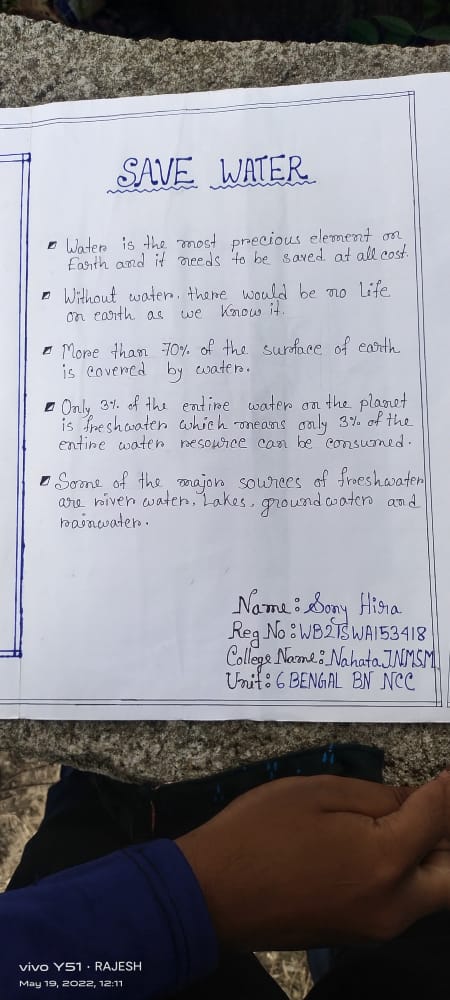 SAVE WATER
Water is the most precious element on
Earth and it needs to be saved at all cost.
Without water. there would be no life
on earth as we know it.
More than 70% of the surface of earth
is covered by water.
Only 3% of the entire water on the planet
is freshwater which means only 3% of the
entire water resource can be consumed.
Some of the major sources of freshwater
are river water, Lakes, groundwater and
rainwater.
Name: Sony Hira
Reg No: WB21SWA153418
College Name: Nahata JNMSM
Unit: 6 BENGAL BN NCC
vivo Y51 · RAJESH
May 19, 2022, 12:11